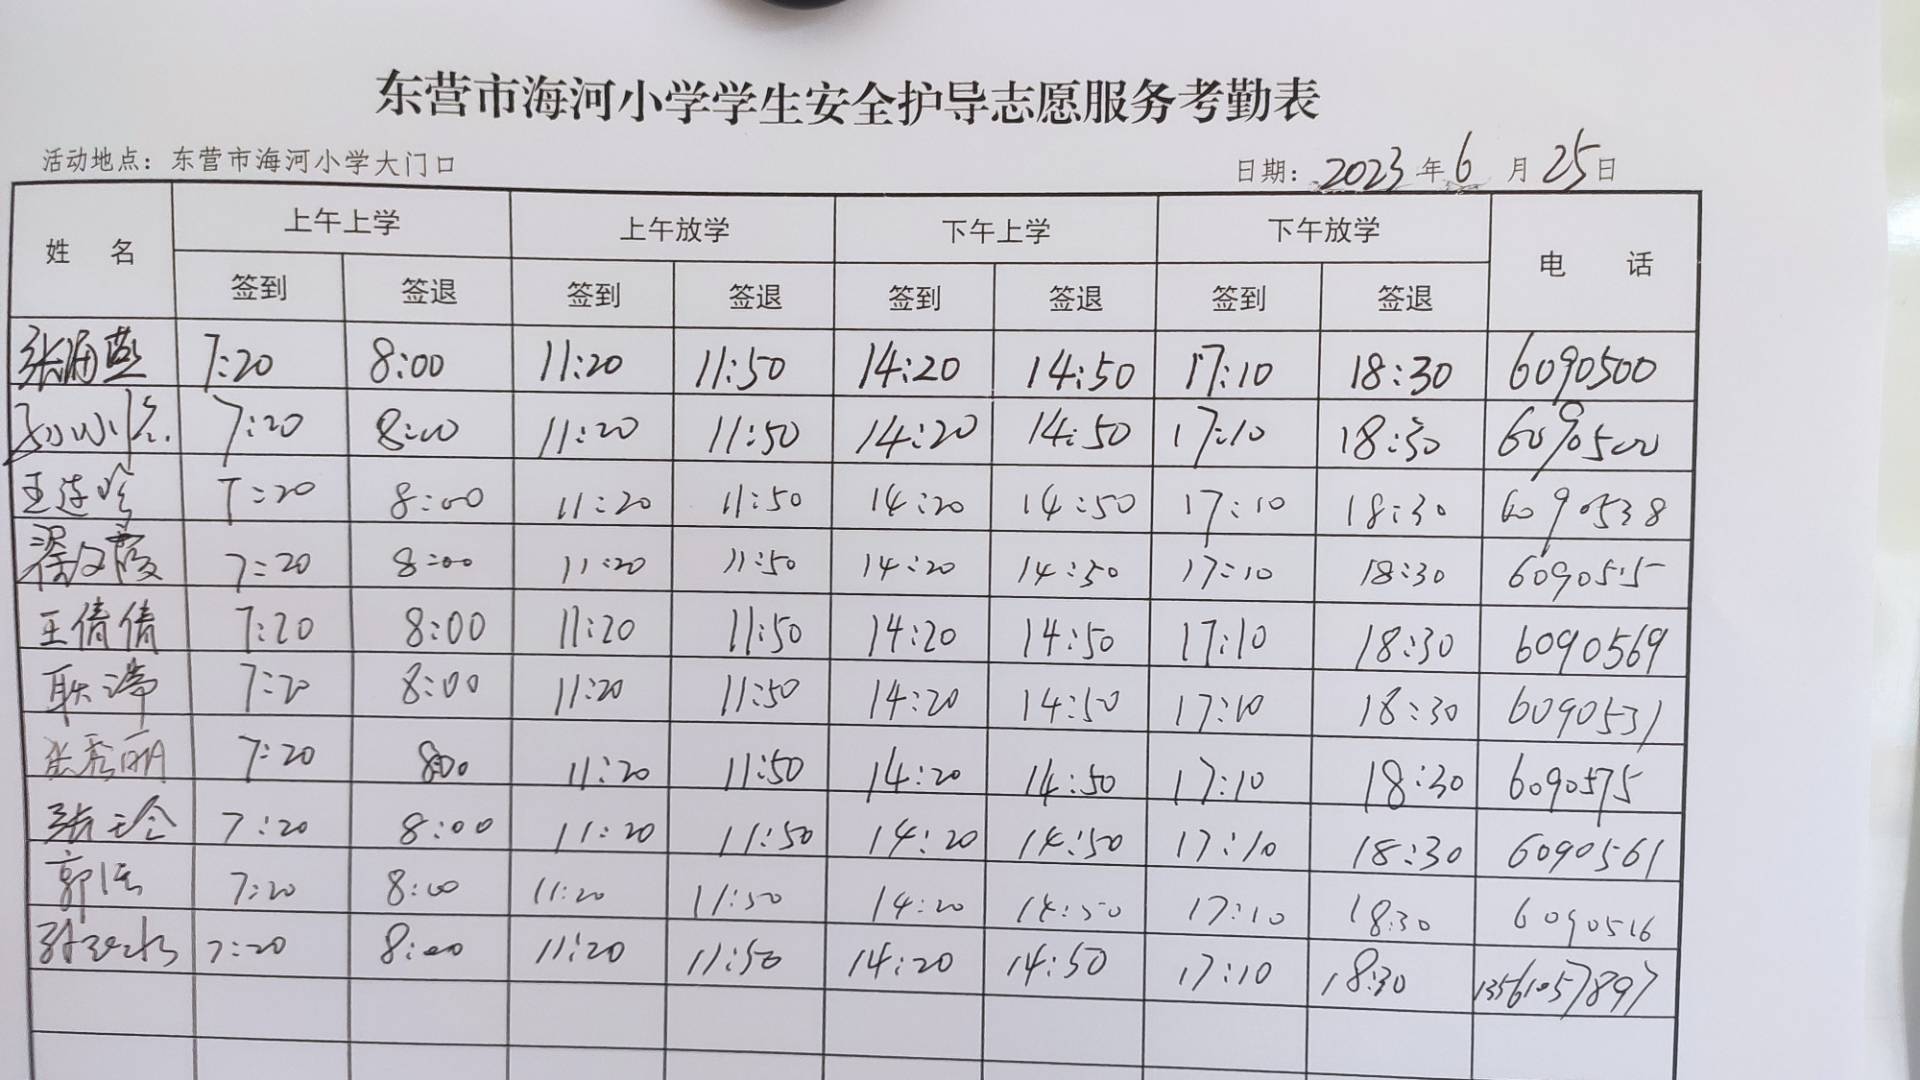 东营市海河小学学生安全护导志愿服务考勤表
活动地点：东营市海河小学大门口 日期：2023年6月25日
姓 名 上午上学 上午放学 下午上学 下午放学 电 话
签到 签退 签到 签退 签到 签退 签到 签退
7:20 8:00 11:20 11:50 14:20 14:50 17:10 18:30 6090500
7:20 8:00 11:20 11:50 14:20 14:50 17:10 18:30 6090500
7:20 8:00 11:20 11:50 14:20 14:50 17:10 18:30 6090538
7:20 8:00 11:20 11:50 14:20 14:50 17:10 18:30 6090515
王倩倩 7:20 8:00 11:20 11:50 14:20 14:50 17:10 18:30 6090569
7:20 8:00 11:20 11:50 14:20 14:50 17:10 18:30 6090531
张秀丽 7:20 8:00 11:20 11:50 14:20 14:50 17:10 18:30 6090575
7:20 8:00 11:20 11:50 14:20 14:50 17:10 18:30 6090561
7:20 8:00 11:20 11:50 14:20 14:50 17:10 18:30 6090516
7:20 8:00 11:20 11:50 14:20 14:50 17:10 18:30 13561057897